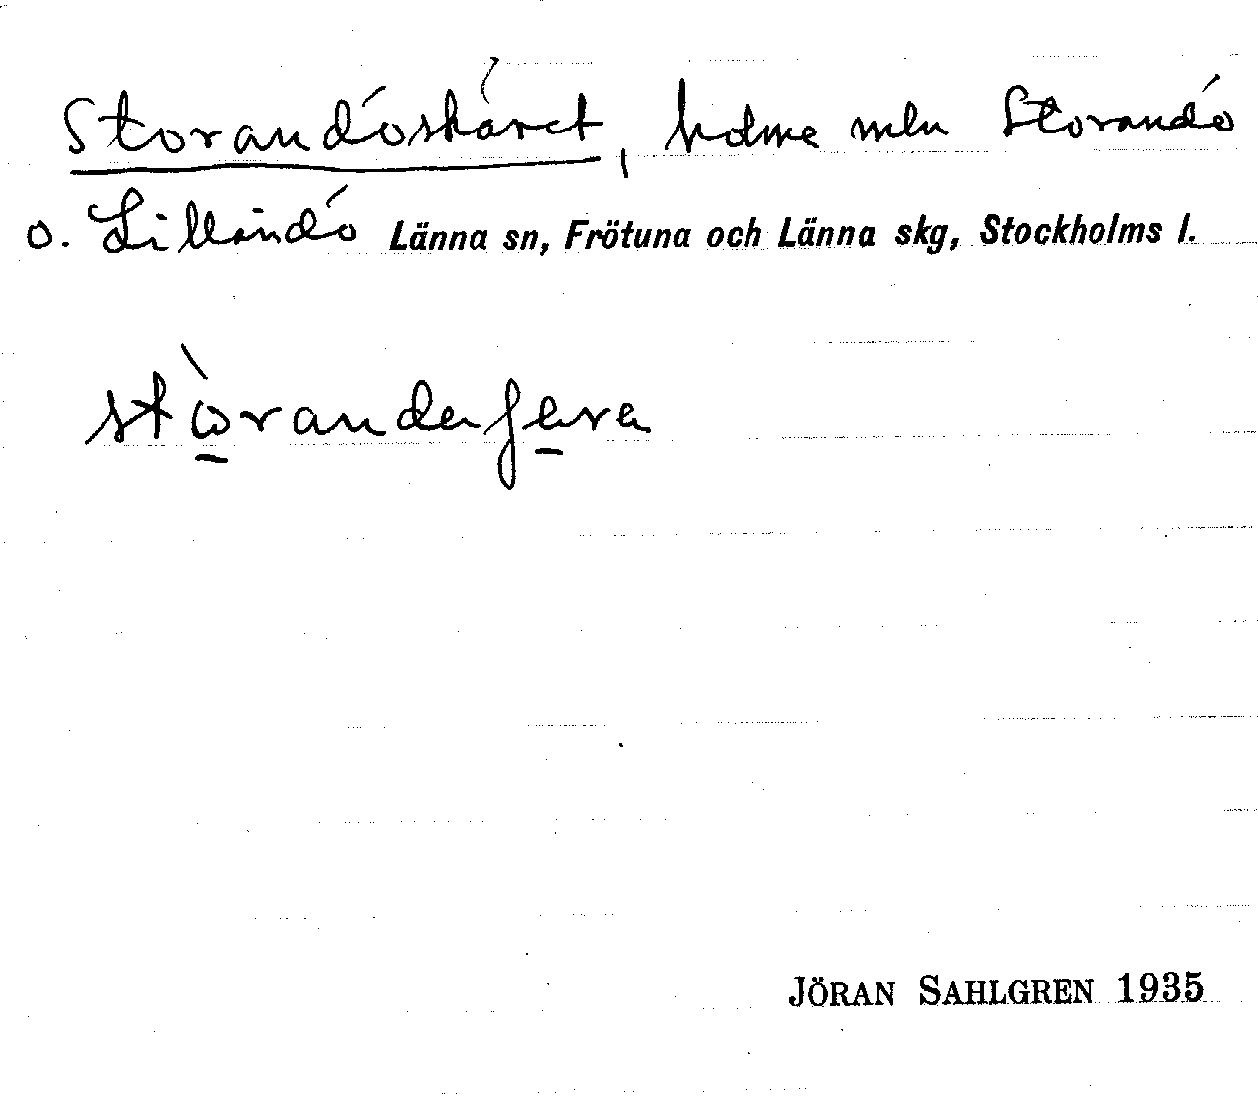 Storandöskäret, holme mln Storandö
o. Lillandö Länna sn, Frötuna och Länna skg, Stockholms l.
JÖRAN SAHLGREN 1935